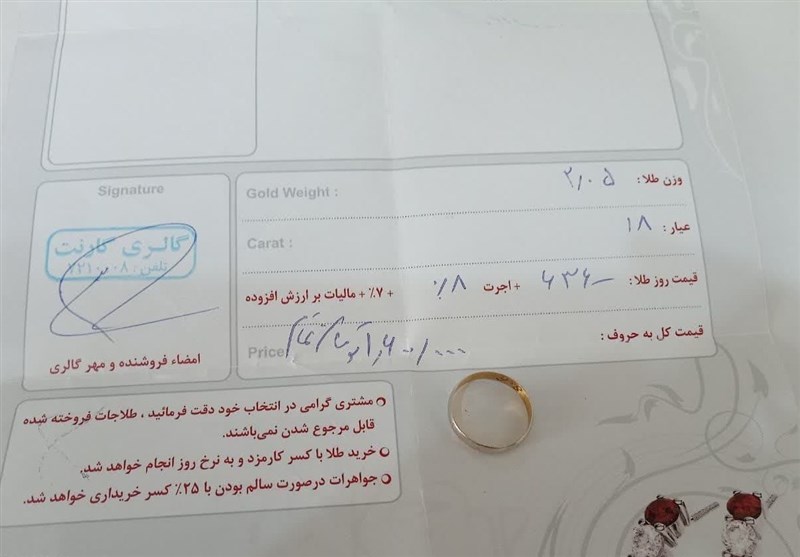 Signature
گالری گارنت
امضاء فروشنده و مهر گالری
وزن طلا: ۲/۰۵ Gold Weight :
عیار: ۱۸ Carat :
قیمت روز طلا: + اجرت ٪۸ + ۷٪ + مالیات بر ارزش افزوده
قیمت کل به حروف: Price
مشتری گرامی در انتخاب خود دقت فرمائید ، طلاجات فروخته شده
قابل مرجوع شدن نمی‌باشند.
خرید طلا با کسر کارمزد و به نرخ روز انجام خواهد شد.
جواهرات درصورت سالم بودن با ۲۵٪ کسر خریداری خواهد شد.